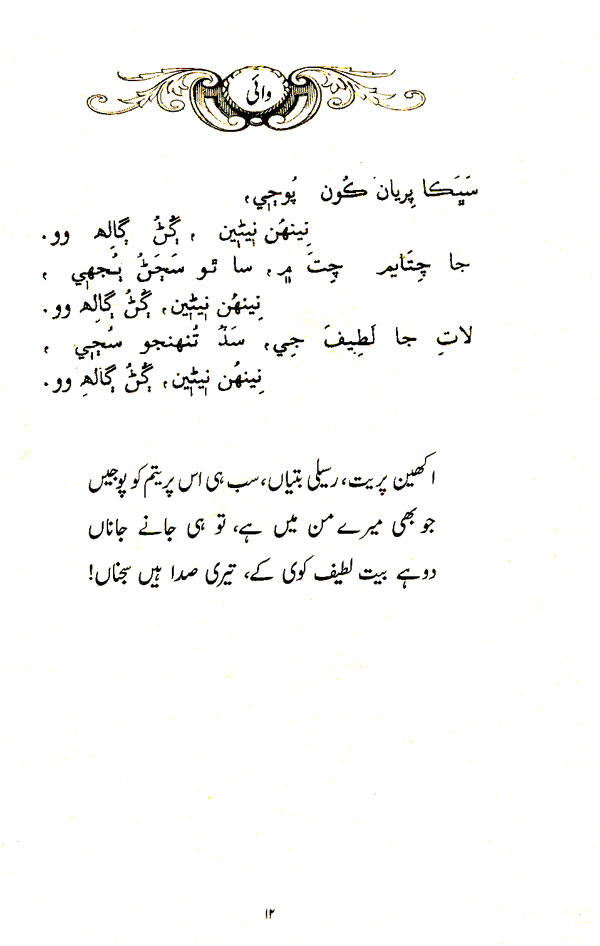 وائی
سَڀَڪا پِريان ڪُون پُوڄي،
نِينهُن نيڻين ، ڳُڻُ ڳالِهہ وو.
جا چِتَايم چِتَ ۾، سا تو سَڄَڻُ ٻُجهي ،
نِينهُن نيڻين، ڳُڻُ ڳالِهہ وو.
لاتِ جا لَطِيفَ جِي، سَڏُ تُنهنجو سُڄي ،
نِينهُن نيڻين، ڳُڻُ ڳالِهہ وو.
اکھین پریت، رسیلی بتیاں، سب ہی اس پریتم کو پوجیں
جو بھی میرے من میں ہے، تو ہی جانے جاناں
دوہے بیت لطیف کوی کے، تیری صدا ہیں سجناں!
۱۲